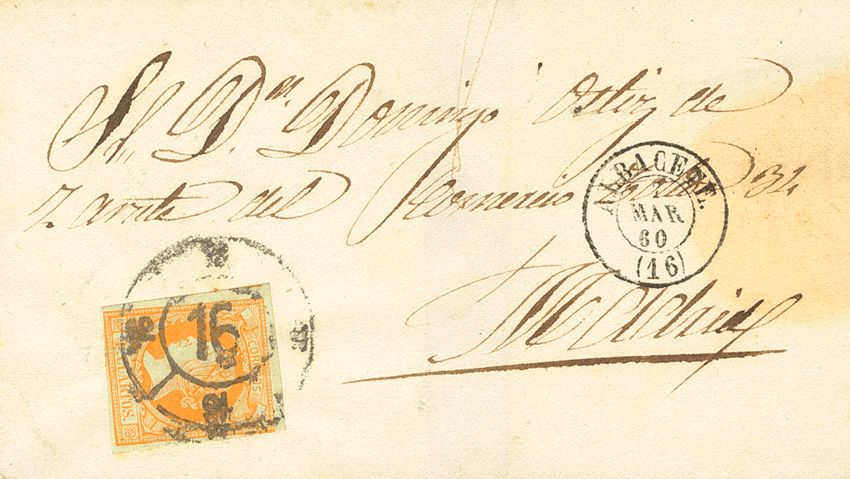 Sr. Dn. Domingo Ortiz de
Zarate del Comercio 32
Madrid
ALBACETE.
1
MAR
60
(16)
16
CUARTOS.